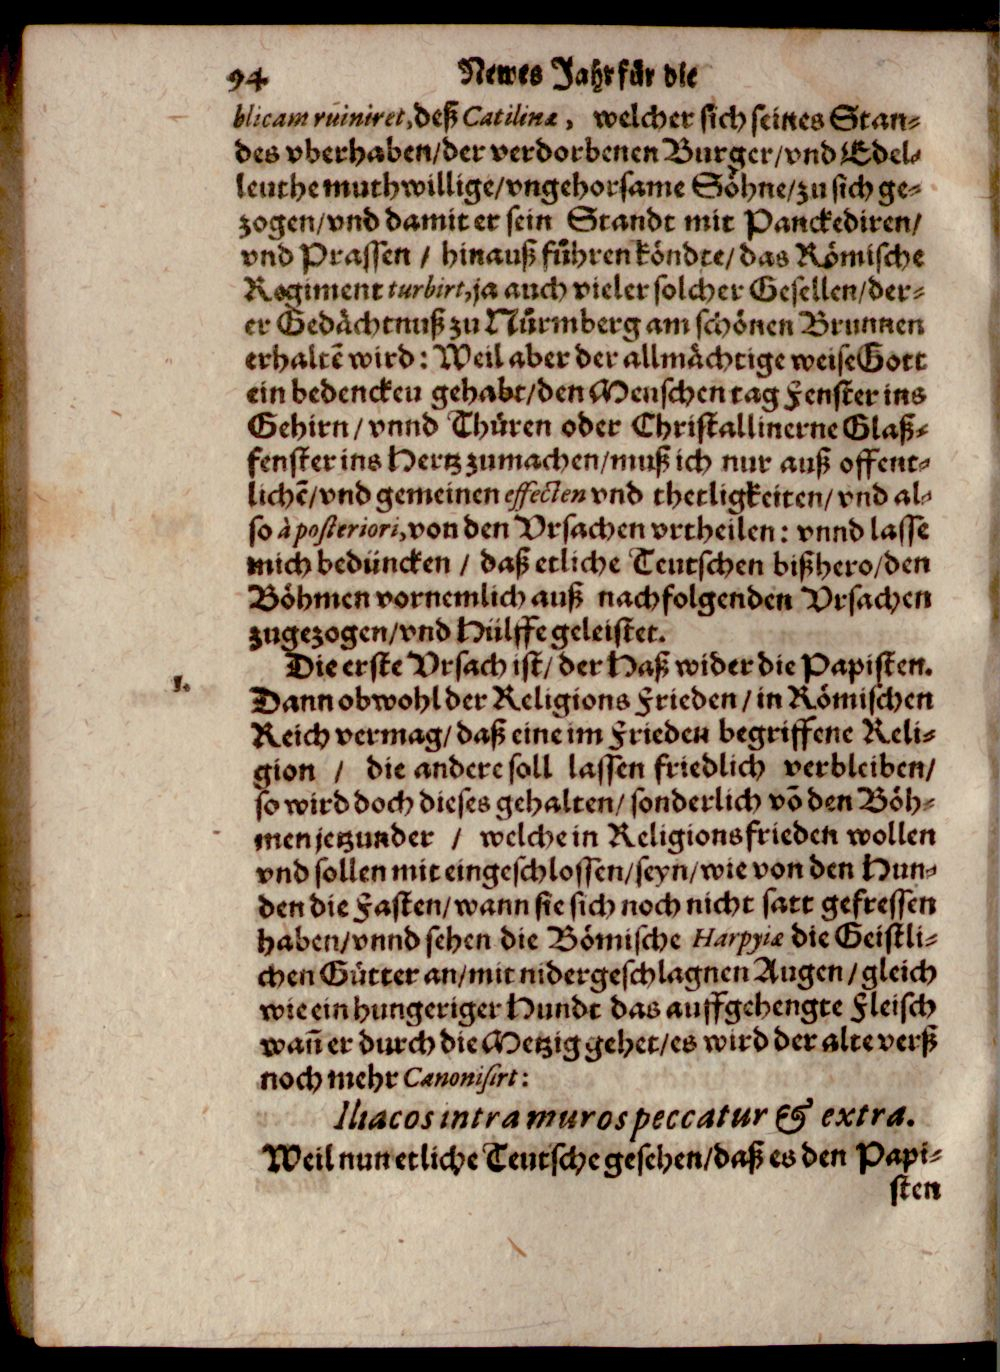 94 Newes Jahr für die
blicam ruiniret, deß Catilinæ, welcher sich seines Stan⸗
des vberhaben/der verdorbenen Burger/vnd Edel⸗
leuthe muthwillige/vngehorsame Söhne/zu sich ge⸗
zogen/vnd damit er sein Standt mit Panckediren/
vnd Prassen / hinauß führen köndte/das Römische
Regiment turbirt, ja auch vieler solcher Gesellen/der⸗
er Gedächtnuß zu Nürmberg am schönen Brunnen
erhaltē wird: Weil aber der allmächtige weise Gott
ein bedencken gehabt/den Menschen tag Fenster ins
Gehirn/ vnnd Thüren oder Christallinerne Glaß⸗
fenster ins Hertz zumachen/muß ich nur auß offent⸗
lichē/vnd gemeinen effecten vnd thetligkeiten/ vnd al⸗
so à posteriori, von den Vrsachen vrtheilen: vnnd lasse
mich bedüncken / daß etliche Teutschen bißhero/den
Böhmen vornemlich auß nachfolgenden Vrsachen
zugezogen/vnd Hülffe geleistet.
Die erste Vrsach ist/ der Haß wider die Papisten.
1.
Dann obwohl der Religions Frieden / in Römischen
Reich vermag/ daß eine im Frieden begriffene Reli⸗
gion / die andere soll lassen friedlich verbleiben/
so wird doch dieses gehalten/ sonderlich vō den Böh⸗
men jetzunder / welche in Religionsfrieden wollen
vnd sollen mit eingeschlossen/seyn/wie von den Hun⸗
den die Fasten/wann sie sich noch nicht satt gefressen
haben/vnnd sehen die Bömische Harpyiæ die Geistli⸗
chen Gütter an/mit nidergeschlagnen Augen/gleich
wie ein hungeriger Hundt das auffgehengte Fleisch
wañ er durch die Metzig gehet/es wird der alte verß
noch mehr Canonisirt:
Iliacos intra muros peccatur & extra.
Weil nun etliche Teutsche gesehen/daß es den Papi⸗
sten